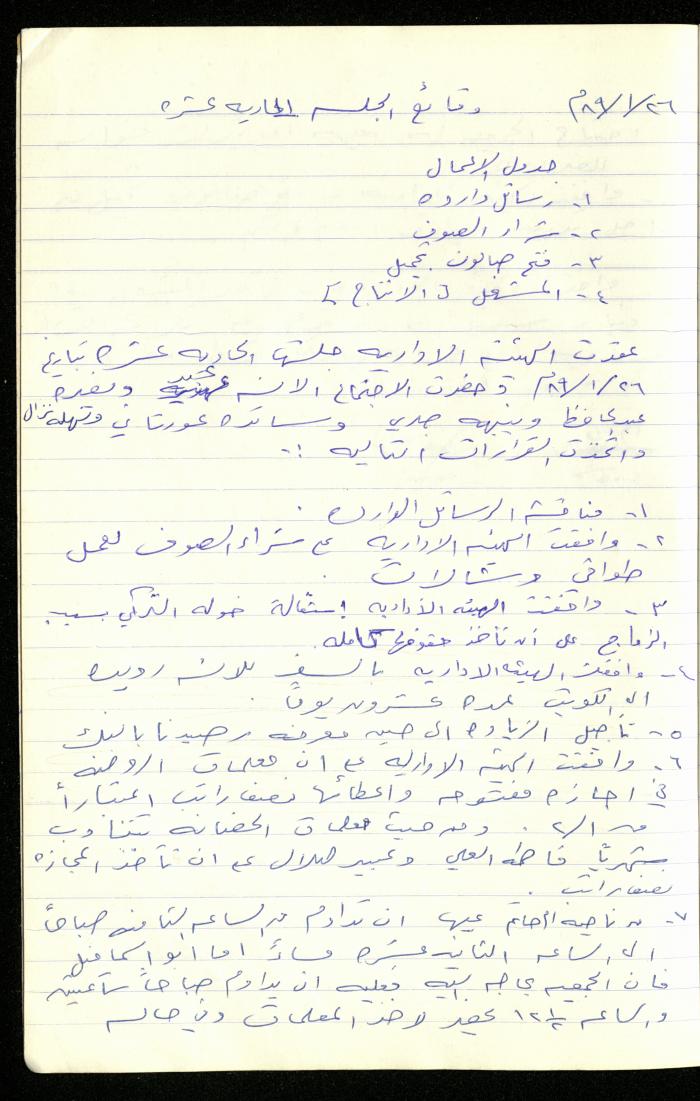 ٨٩/١/٢٦م وقائع الجلسه الحاديه عشره
جدول الاعمال
١- رسائل وارده
٢- شراء الصوف
٣- فتح صالون تجميل
٤- المشغل [ الانتاج ]
عقدت الهيئه الاداريه جلستها الحاديه عشره بتاريخ
٨٩/١/٢٦م و حضرت الاجتماع الانسه عبير
عبدالحافظ ونبيهه جدي وسانده عورتاني وسهله نزال
واتخذت القرارات التاليه :-
١- مناقشه الرسائل الوارده .
٢- وافقت الهيئه الاداريه على شراء الصوف لعمل
طواقي وشالات .
٣- وافقت الهيئه الأداريه إستقالة خوله التركي بسبب
الزواج على أن تأخذ حقوقها كامله.
٤- وافقت الهيئه الاداريه بالسفر للانسه رويده
الى الكويت لمده عشرون يوماً .
٥- تأجل الزياده الى حين معرفه رصيدنا بالبنك
٦- وافقت الهيئه الاداريه على ان معلمات الروضه
في اجازه مفتوحه واعطائها نصف راتب اعتباراً
من ٢/١. ومن حيث معلمات الحضانه تتناوب
شهرياً فاطمه العلي وعبير هلال على ان تأخذ المجازه
نصف راتب .
٧- من ناحيه ام حاتم عليها ان تداوم من الساعه الثامنه صباحاً
الى الساعه الثانيه عشره مساءً اما ابو اسماعيل
فان الجمعيه بحاجه اليه فعليه ان يداوم صباحاً ساعتين
والساعه ١٢½ يحضر لاخذ المعلمات وفي حاله